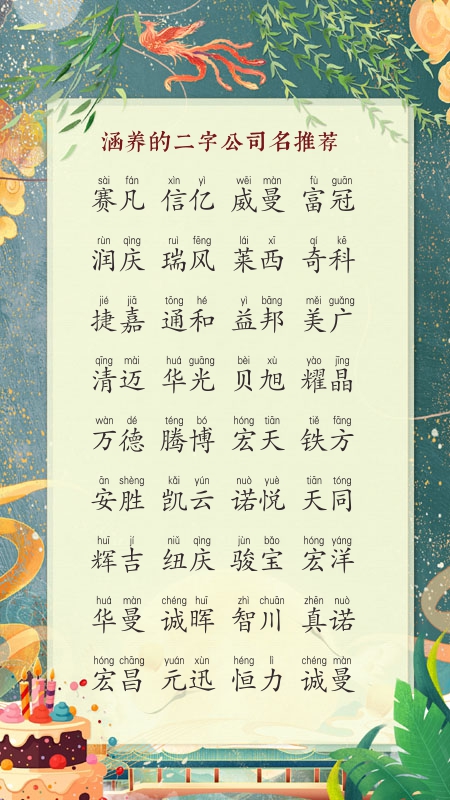 涵养的二字公司名推荐
sài fán xìn yì wēi màn fù guān
赛凡 信亿 威曼 富冠
rùn qìng ruì fēng lái xī qí kē
润庆 瑞风 莱西 奇科
jié jiā tōng hé yì bāng měi guǎng
捷嘉 通和 益邦 美广
qīng mài huá guāng bèi xù yào jīng
清迈 华光 贝旭 耀晶
wàn dé téng bó hóng tiān tiě fāng
万德 腾博 宏天 铁方
ān shèng kǎi yún nuò yuè tiān tóng
安胜 凯云 诺悦 天同
huī jí niǔ qìng jùn bǎo hóng yáng
辉吉 纽庆 骏宝 宏洋
huá màn chéng huī zhì chuān zhēn nuò
华曼 诚晖 智川 真诺
hóng chāng yuán xùn héng lì chéng màn
宏昌 元迅 恒力 诚曼